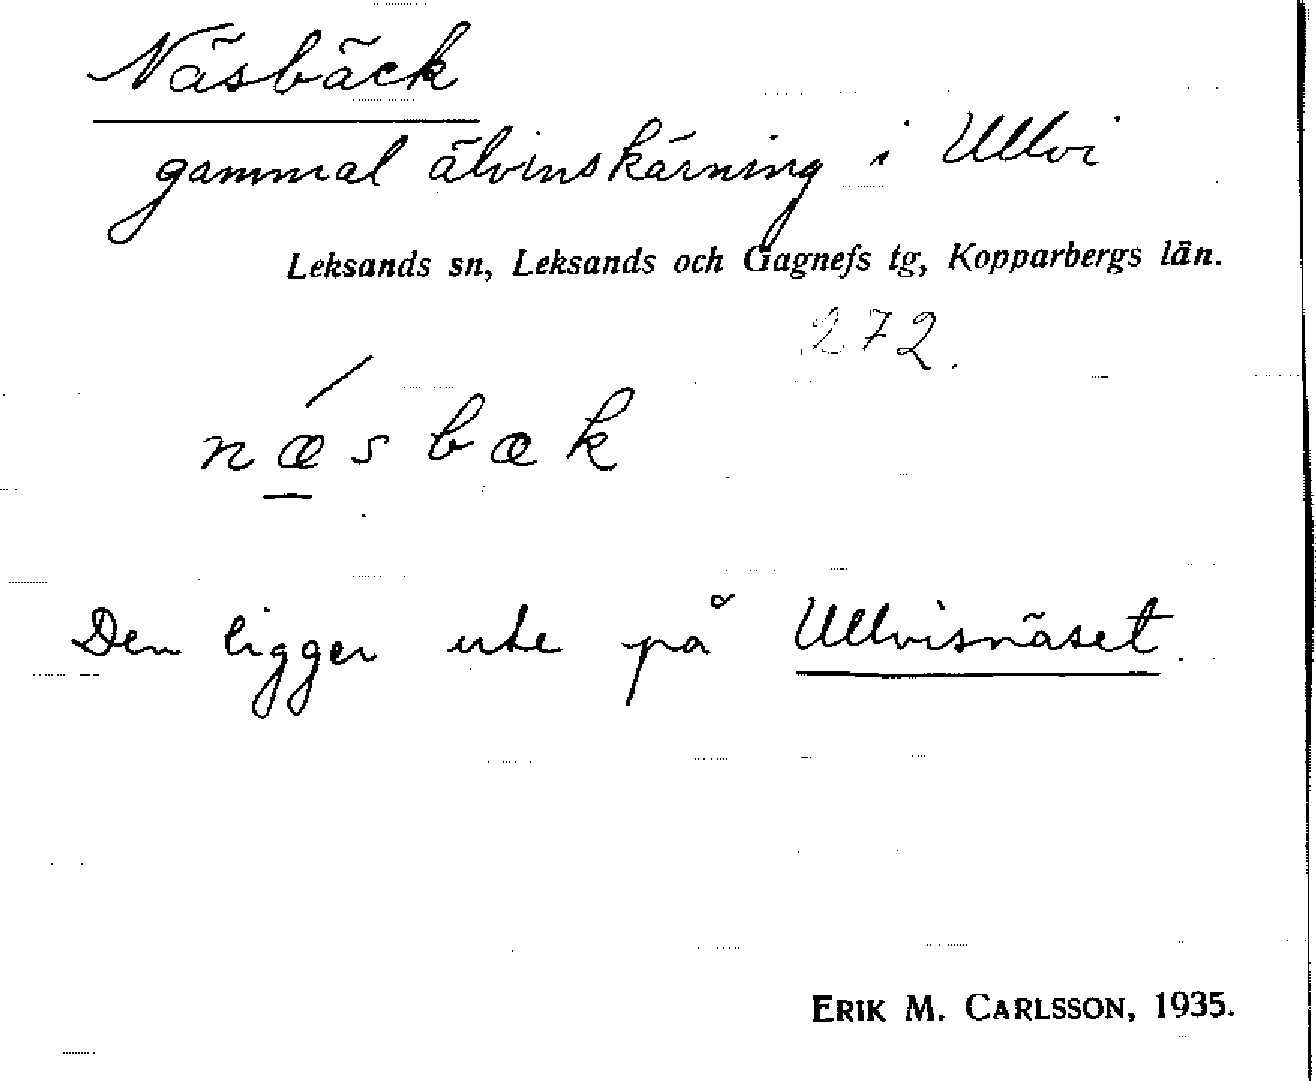 Näsbäck
gammal älvinskärning i Ullvi
Leksands sn, Leksands och Gagnefs tg, Kopparbergs län.
272.
næsbæk
Den ligger ute på Ullvisnäset.
ERIK M. CARLSSON, 1935.